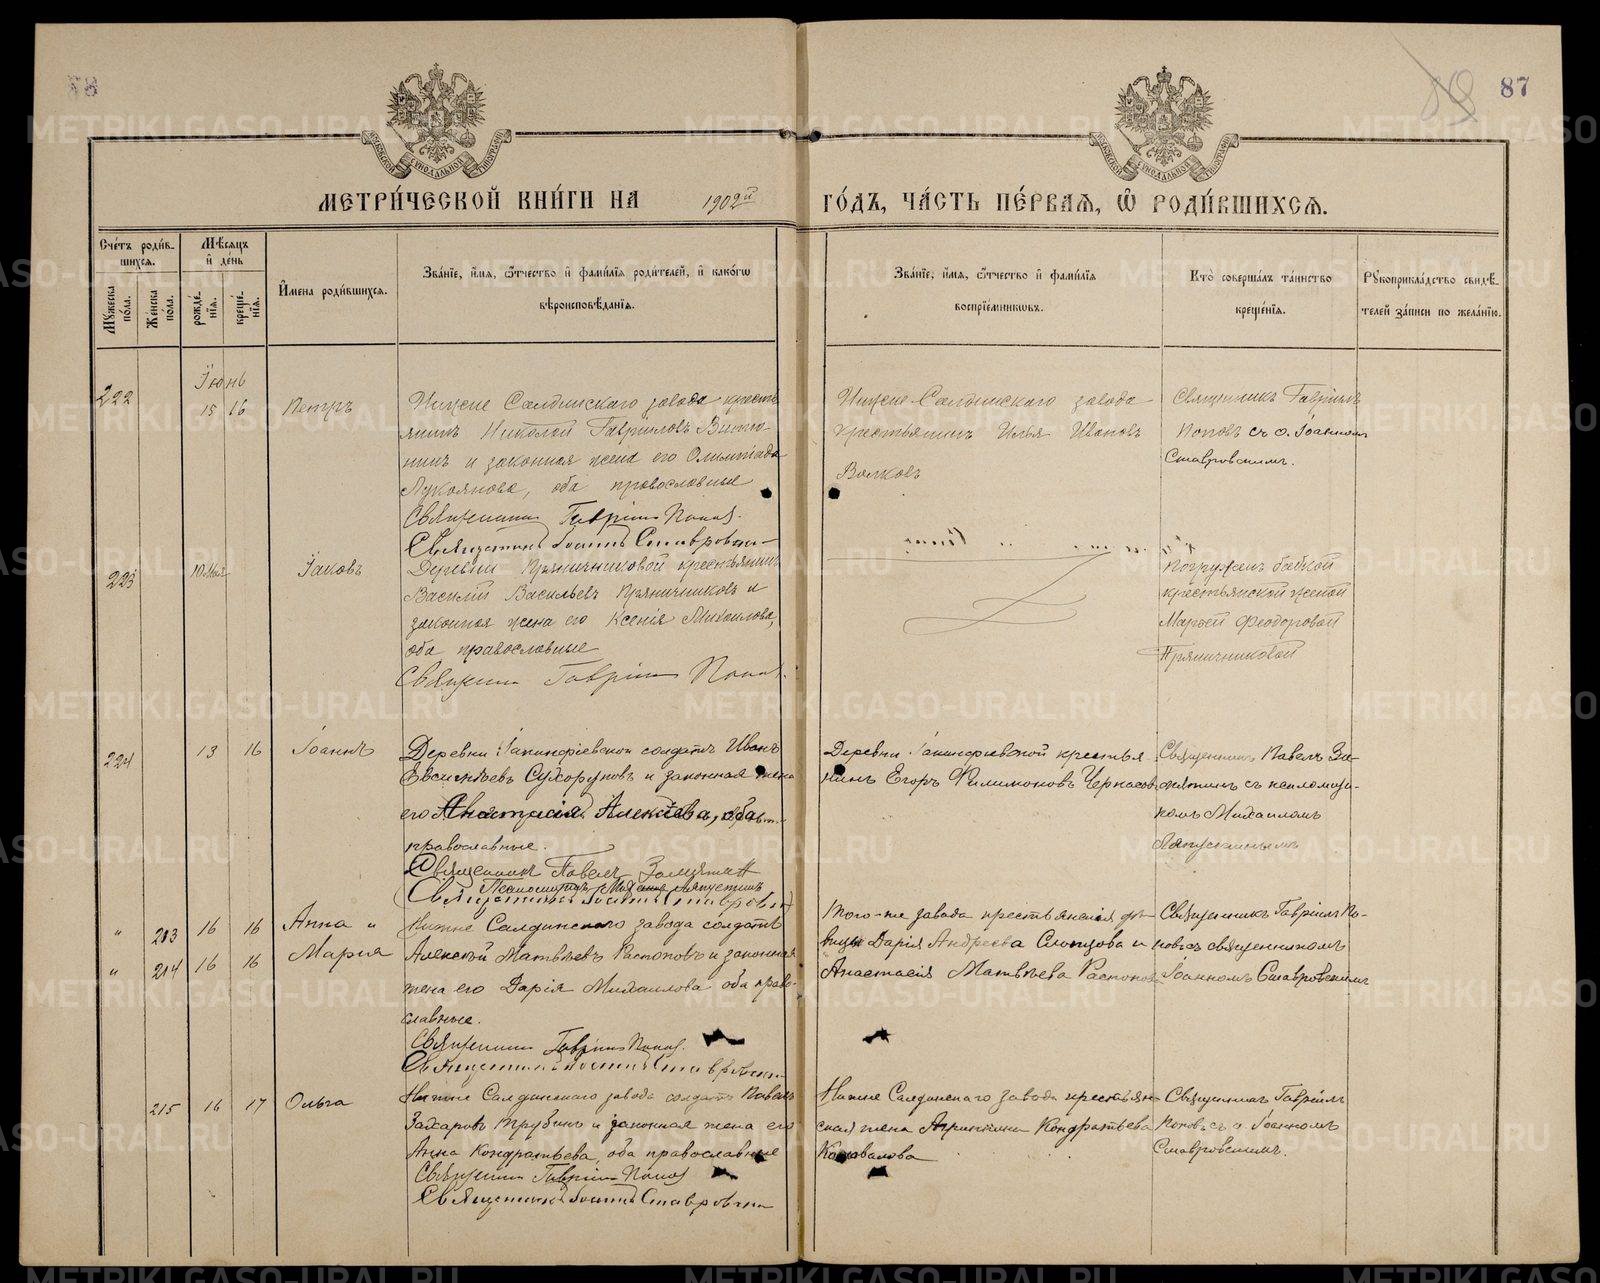 87
МЕТРИ́ЧЕСКОЙ КНИ́ГИ НА 1902й ГО́ДЪ, ЧА́СТЬ ПЕ́РВАѦ, Ѽ РОДИ́ВШИХСѦ.
Сче́тъ роди́в-
шихсѧ.
Мꙋ́жеска по́ла.
Же́нска по́ла.
Мѣ́сѧцъ и де́нь
рожде́-
нїѧ.
креще́-
нїѧ.
И҆мена роди́вшихсѧ.
Зва́нїе, и҆́мѧ, ѻ҆́тчество и҆ фами́лїѧ роди́телей, и҆ како́гѡ
вѣроисповѣ́данїѧ.
Зва́нїе, и҆́мѧ, ѻ҆́тчество и҆ фами́лїѧ
воспрїе́мникѡвъ.
Кто̀ соверша́лъ та́инство
креще́нїѧ.
Рꙋкоприкла́дство свидѣ́-
телей за́писи по жела́нїю.
Іюнь
222 15 16 Петръ
Нижне Салдинскаго завода кресть
янинъ Николай Гавриловъ
и законная жена его Олимпіада
Лукоянова, оба православные
Священникъ Гавріилъ Поповъ.
Священникъ Іоаннъ Ставровскій
Нижне-Салдинскаго завода
крестьянинъ Илья Ивановъ
Волковъ
Священникъ Гавріилъ
Поповъ съ о. Іоанномъ
Ставровскимъ.
223 10 Мая Іаковъ
Деревни Пряничниковой крестьянинъ
Василій Васильевъ Пряничниковъ и
законная жена его Ксенія Михаилова,
оба православные
Священникъ Гавріилъ Поповъ.
Погруженъ бабкой
крестьянской женой
Марьей Ѳеодоровой
Пряничниковой
224 13 16 Іоаннъ
Деревни Іакинфіевской солдатъ Иванъ
Евсигнѣевъ Сухоруковъ и законная жена
его Анастасія Алексѣева, оба
православные.
Священникъ Павелъ
Псаломщикъ Михаилъ Ляпустинъ
Священникъ Іоаннъ Ставровскій
Деревни Іакинфіевской крестья
нинъ Егоръ Филимоновъ Черкасовъ
Священникъ Павелъ За-
мятинъ съ псаломщи-
комъ Михаиломъ
Ляпустинымъ
" 213 16 16 Анна "
" 214 16 16 Марія
Нижне Салдинскаго завода солдатъ
Алексѣй Матвѣевъ Распоповъ и законная
жена его Дарія Михаилова оба право-
славные.
Священникъ Гавріилъ Поповъ.
Священникъ Іоаннъ Ставровскій
Того-же завода крестьянскія дѣ-
вицы Дарія Андреева Слопцова и
Анастасія Матвѣева Распопова
Священникъ Гавріилъ По-
повъ съ священникомъ
Іоанномъ Ставровскимъ
215 16 17 Ольга
Нижне Салдинскаго завода солдатъ Павелъ
Захаровъ Трубинъ и законная жена его
Анна Кондратьева, оба православные
Священникъ Гавріилъ Поповъ
Священникъ Іоаннъ Ставровскій
Нижне Салдинскаго завода крестьян-
ская жена Агриппина Кондратьева
Коновалова
Священникъ Гавріилъ
Поповъ съ о. Іоанномъ
Ставровскимъ.
METRIKI.GASO-URAL.RU